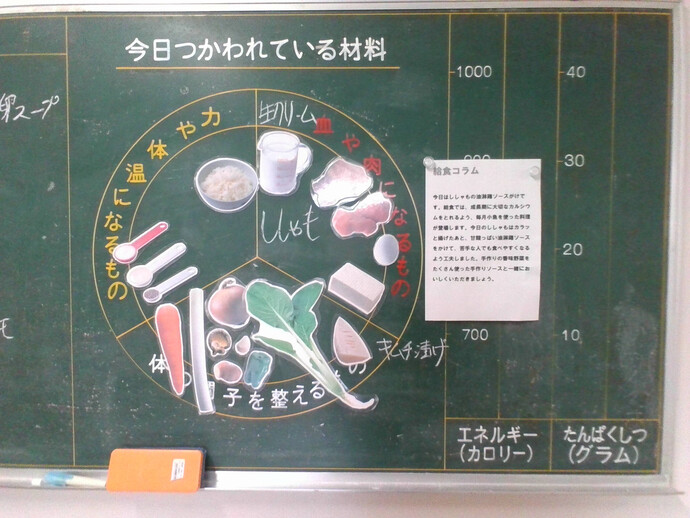 今日つかわれている材料
卵スープ
生クリーム
力や体温になるもの
血や肉になるもの
ししゃも
キムチ漬け
体の調子を整えるもの
給食コラム
今日はししゃもの油淋鶏ソースがけで
す。給食では、成長期に大切なカルシウ
ムをとれるよう、毎月小魚を使った料理
が登場します。今日のししゃもはカラッ
と揚げたあと、甘酸っぱい油淋鶏ソース
をかけて、苦手な人でも食べやすくなる
よう工夫しました。手作りの香味野菜を
たくさん使った手作りソースと一緒にお
いしくいただきましょう。
1000
40
30
20
700
10
エネルギー
(カロリー)
たんぱくしつ
(グラム)